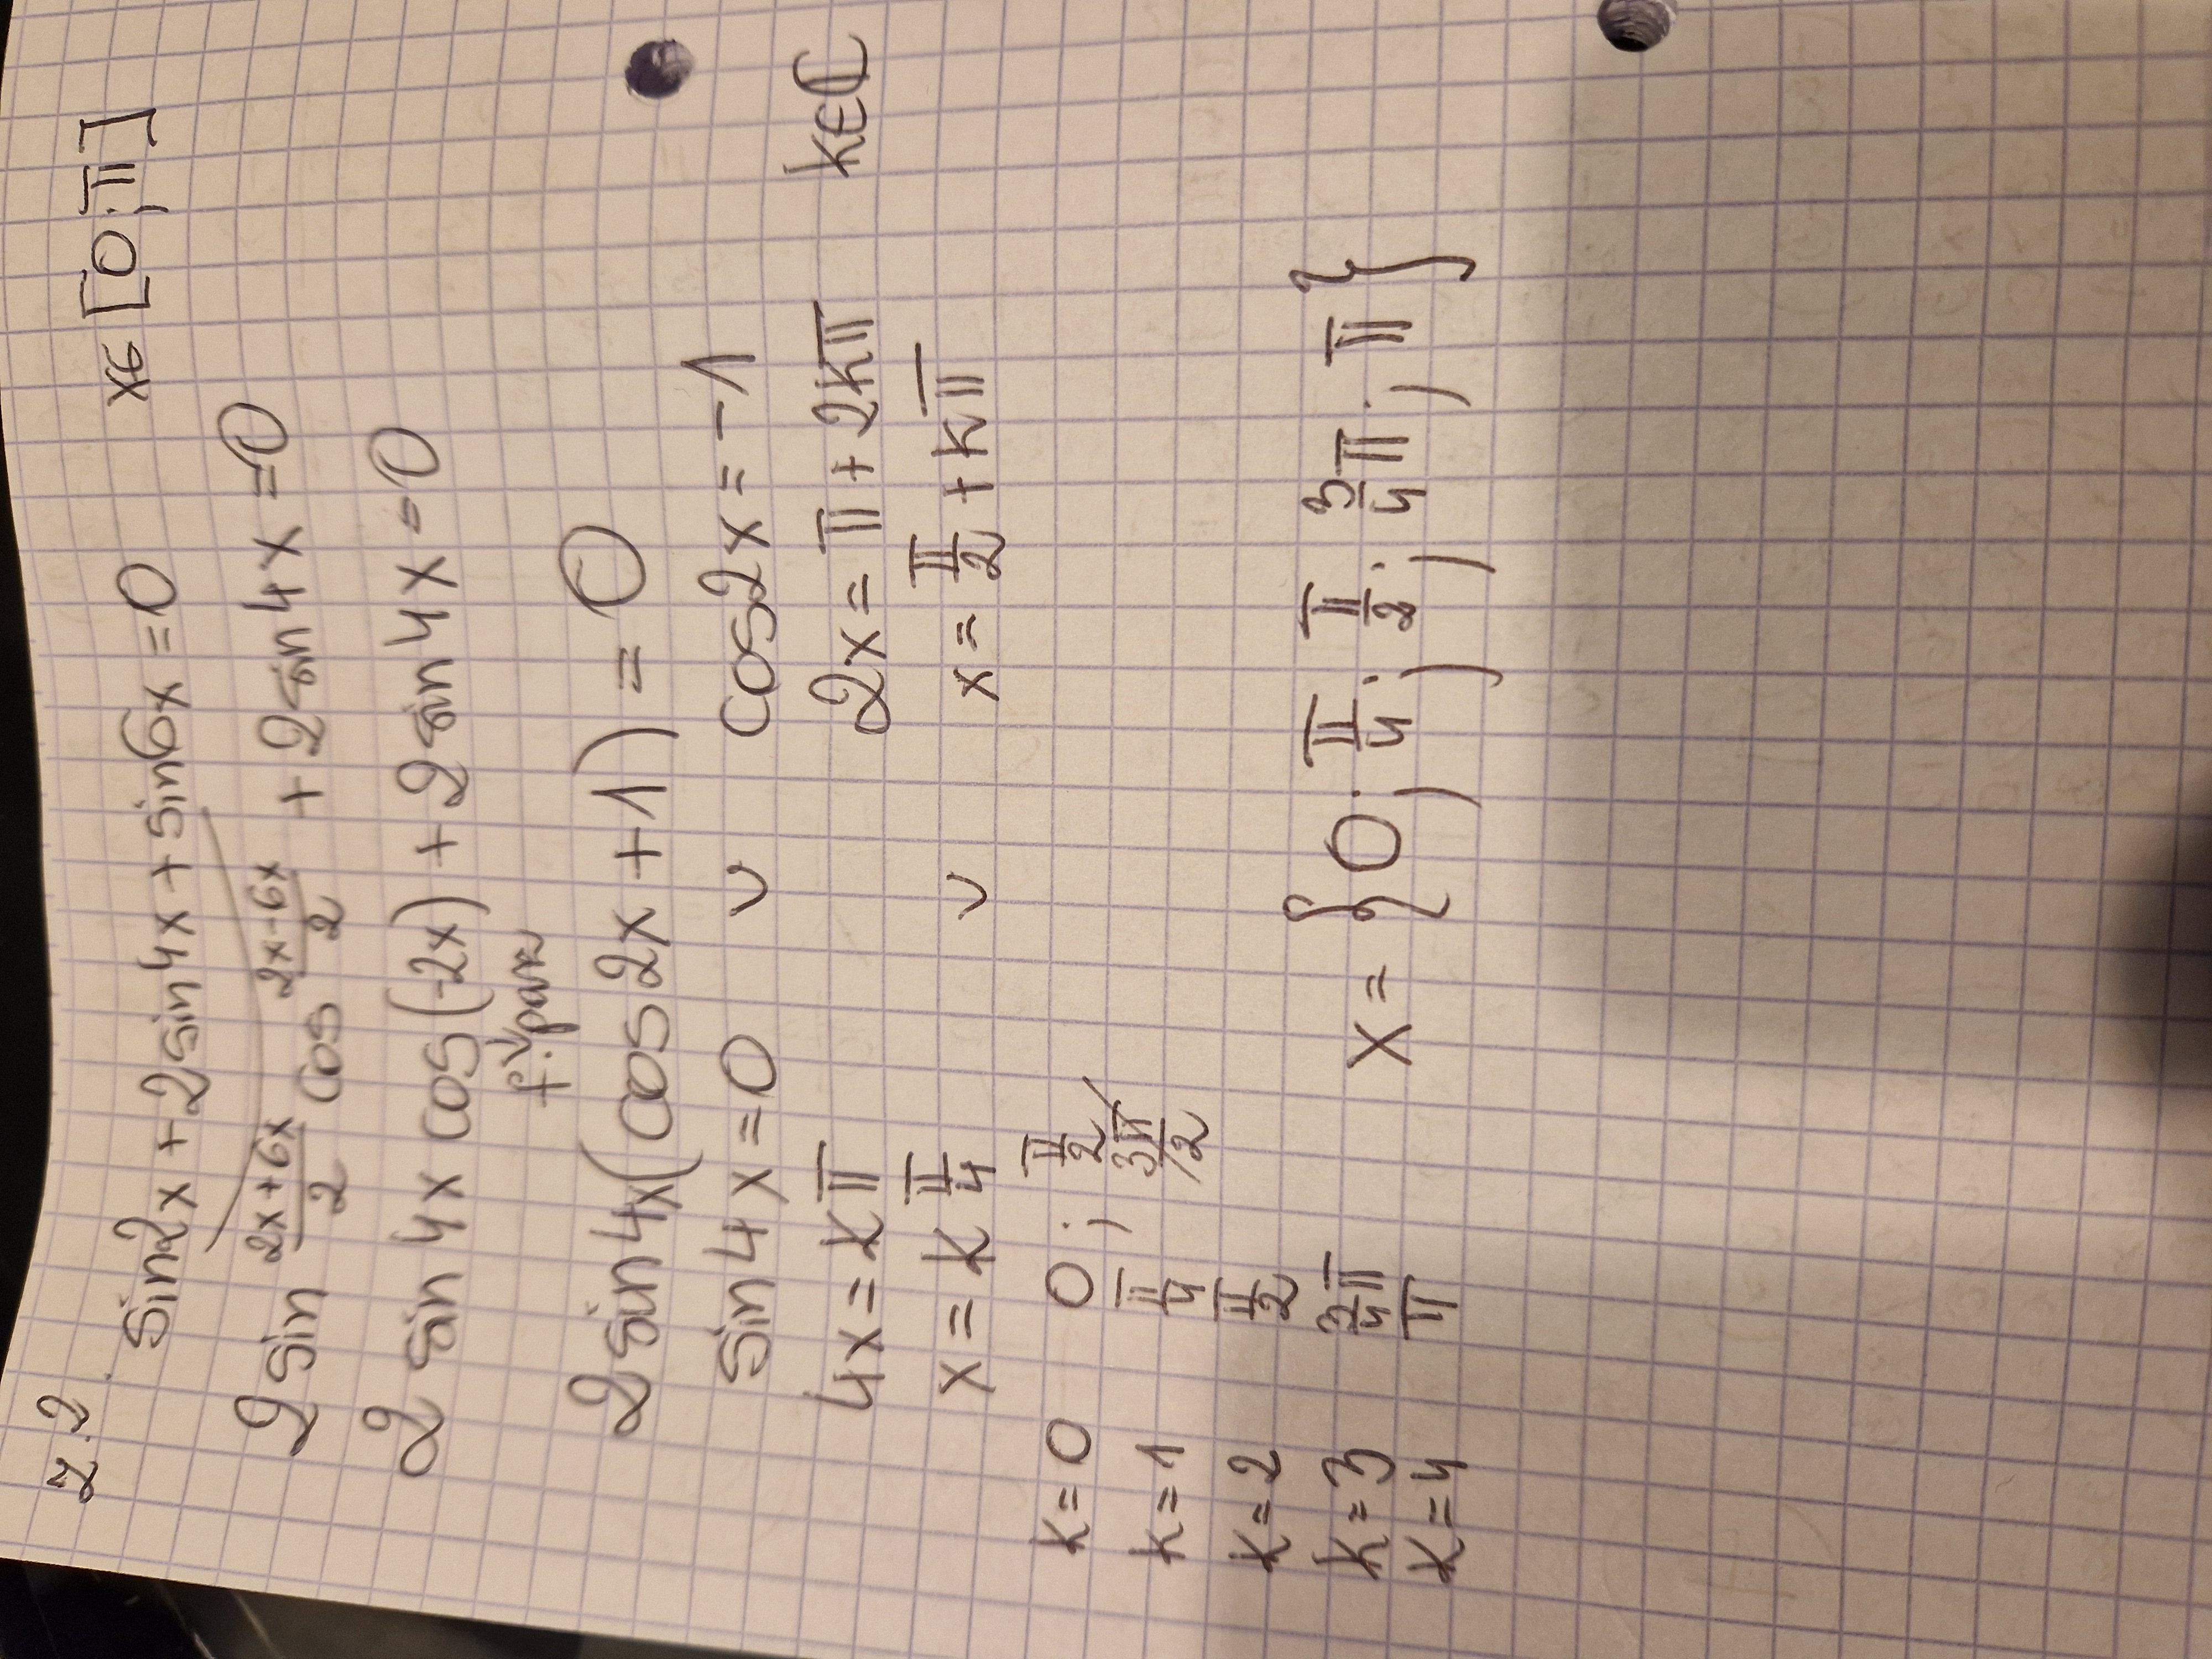 z.2. sin2x + 2sin4x + sin6x = 0   x∈[0;π]
2 sin (2x+6x)/2 cos (2x-6x)/2 + 2 sin 4x = 0
2 sin 4x cos(-2x) + 2 sin 4x = 0
f. parz
2 sin 4x (cos 2x + 1) = 0
sin 4x = 0 ∨ cos 2x = -1
4x = kπ 2x = π + 2kπ k∈C
x = k π/4 ∨ x = π/2 + kπ
k=0 0 ; π/2
k=1 π/4 3π/2
k=2 π/2
k=3 3/4 π
k=4 π
x = {0; π/4; π/2; 3/4 π; π}